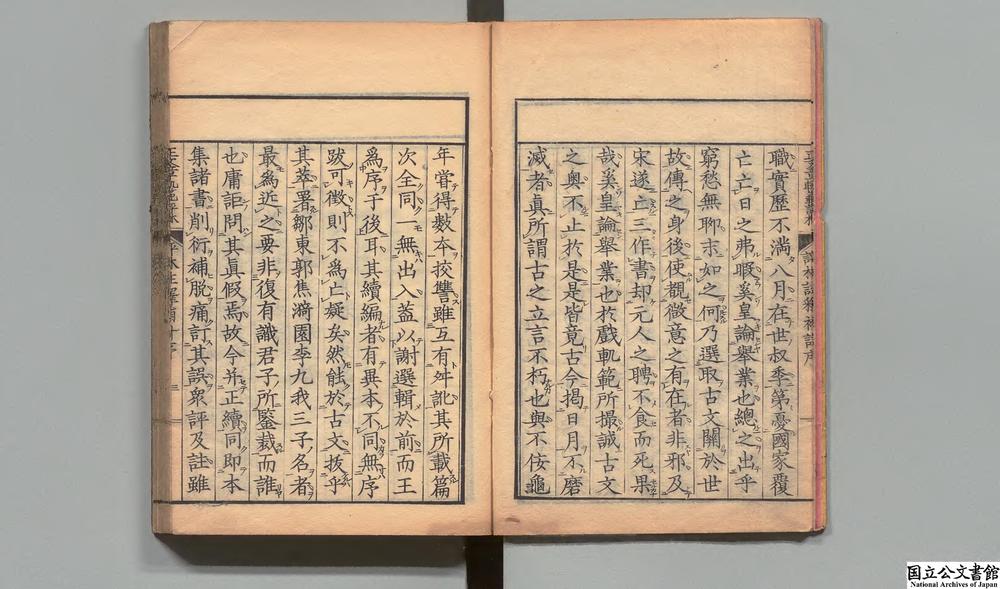 職實歷不滿八月在世叔季第憂國家覆
亡亡日之弗暇奚皇論舉業也總之出乎
窮愁無聊末如之何乃選取古文關於世
故傳之身後使覩微意之有在者非邪及
宋遂亡三作書却元人之聘不食而死果
哉奚皇論舉業也於戲軌範所撮誠古文
之奧不止於是是皆竟古今揭日月不磨
滅者眞所謂古之立言不朽也與不侫龜
年嘗得數本挍讐雖互有舛訛其所載篇
次全同一無出入葢以謝選輯於前而王
爲序于後耳其續編者有異本不同無序
跋可徵則不爲亡疑矣然能於古文拔乎
其萃署鄒東郭焦漪園李九我三子名者
最爲近之要非復有識君子所鑒裁而誰
也庸詎問其眞假焉故今并正續同即本
集諸書削衍補脫痛訂其誤衆評及註雖
国立公文書館
National Archives of Japan